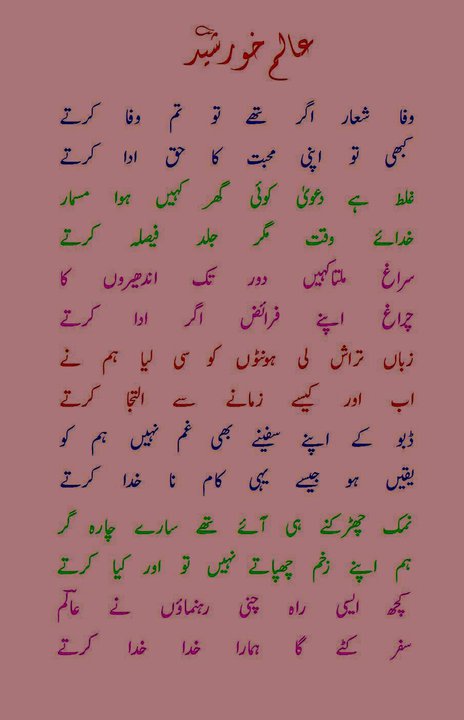 عالم خورشید
وفا شعار اگر تھے تو تم وفا کرتے
کبھی تو اپنی محبت کا حق ادا کرتے
غلط ہے دعویٰ کوئی گھر کہیں ہوا مسمار
خدائے وقت مگر جلد فیصلہ کرتے
سراغ ملتا کہیں دور تک اندھیروں کا
چراغ اپنے فرائض اگر ادا کرتے
زباں تراش لی ہونٹوں کو سی لیا ہم نے
اب اور کیسے زمانے سے التجا کرتے
ڈبو کے اپنے سفینے بھی غم نہیں ہم کو
یقیں ہو جیسے یہی کام نا خدا کرتے
نمک چھڑکنے ہی آئے تھے سارے چارہ گر
ہم اپنے زخم چھپاتے نہیں تو اور کیا کرتے
کچھ ایسی راہ چنی رہنماؤں نے عالمؔ
سفر کٹے گا ہمارا خدا خدا کرتے